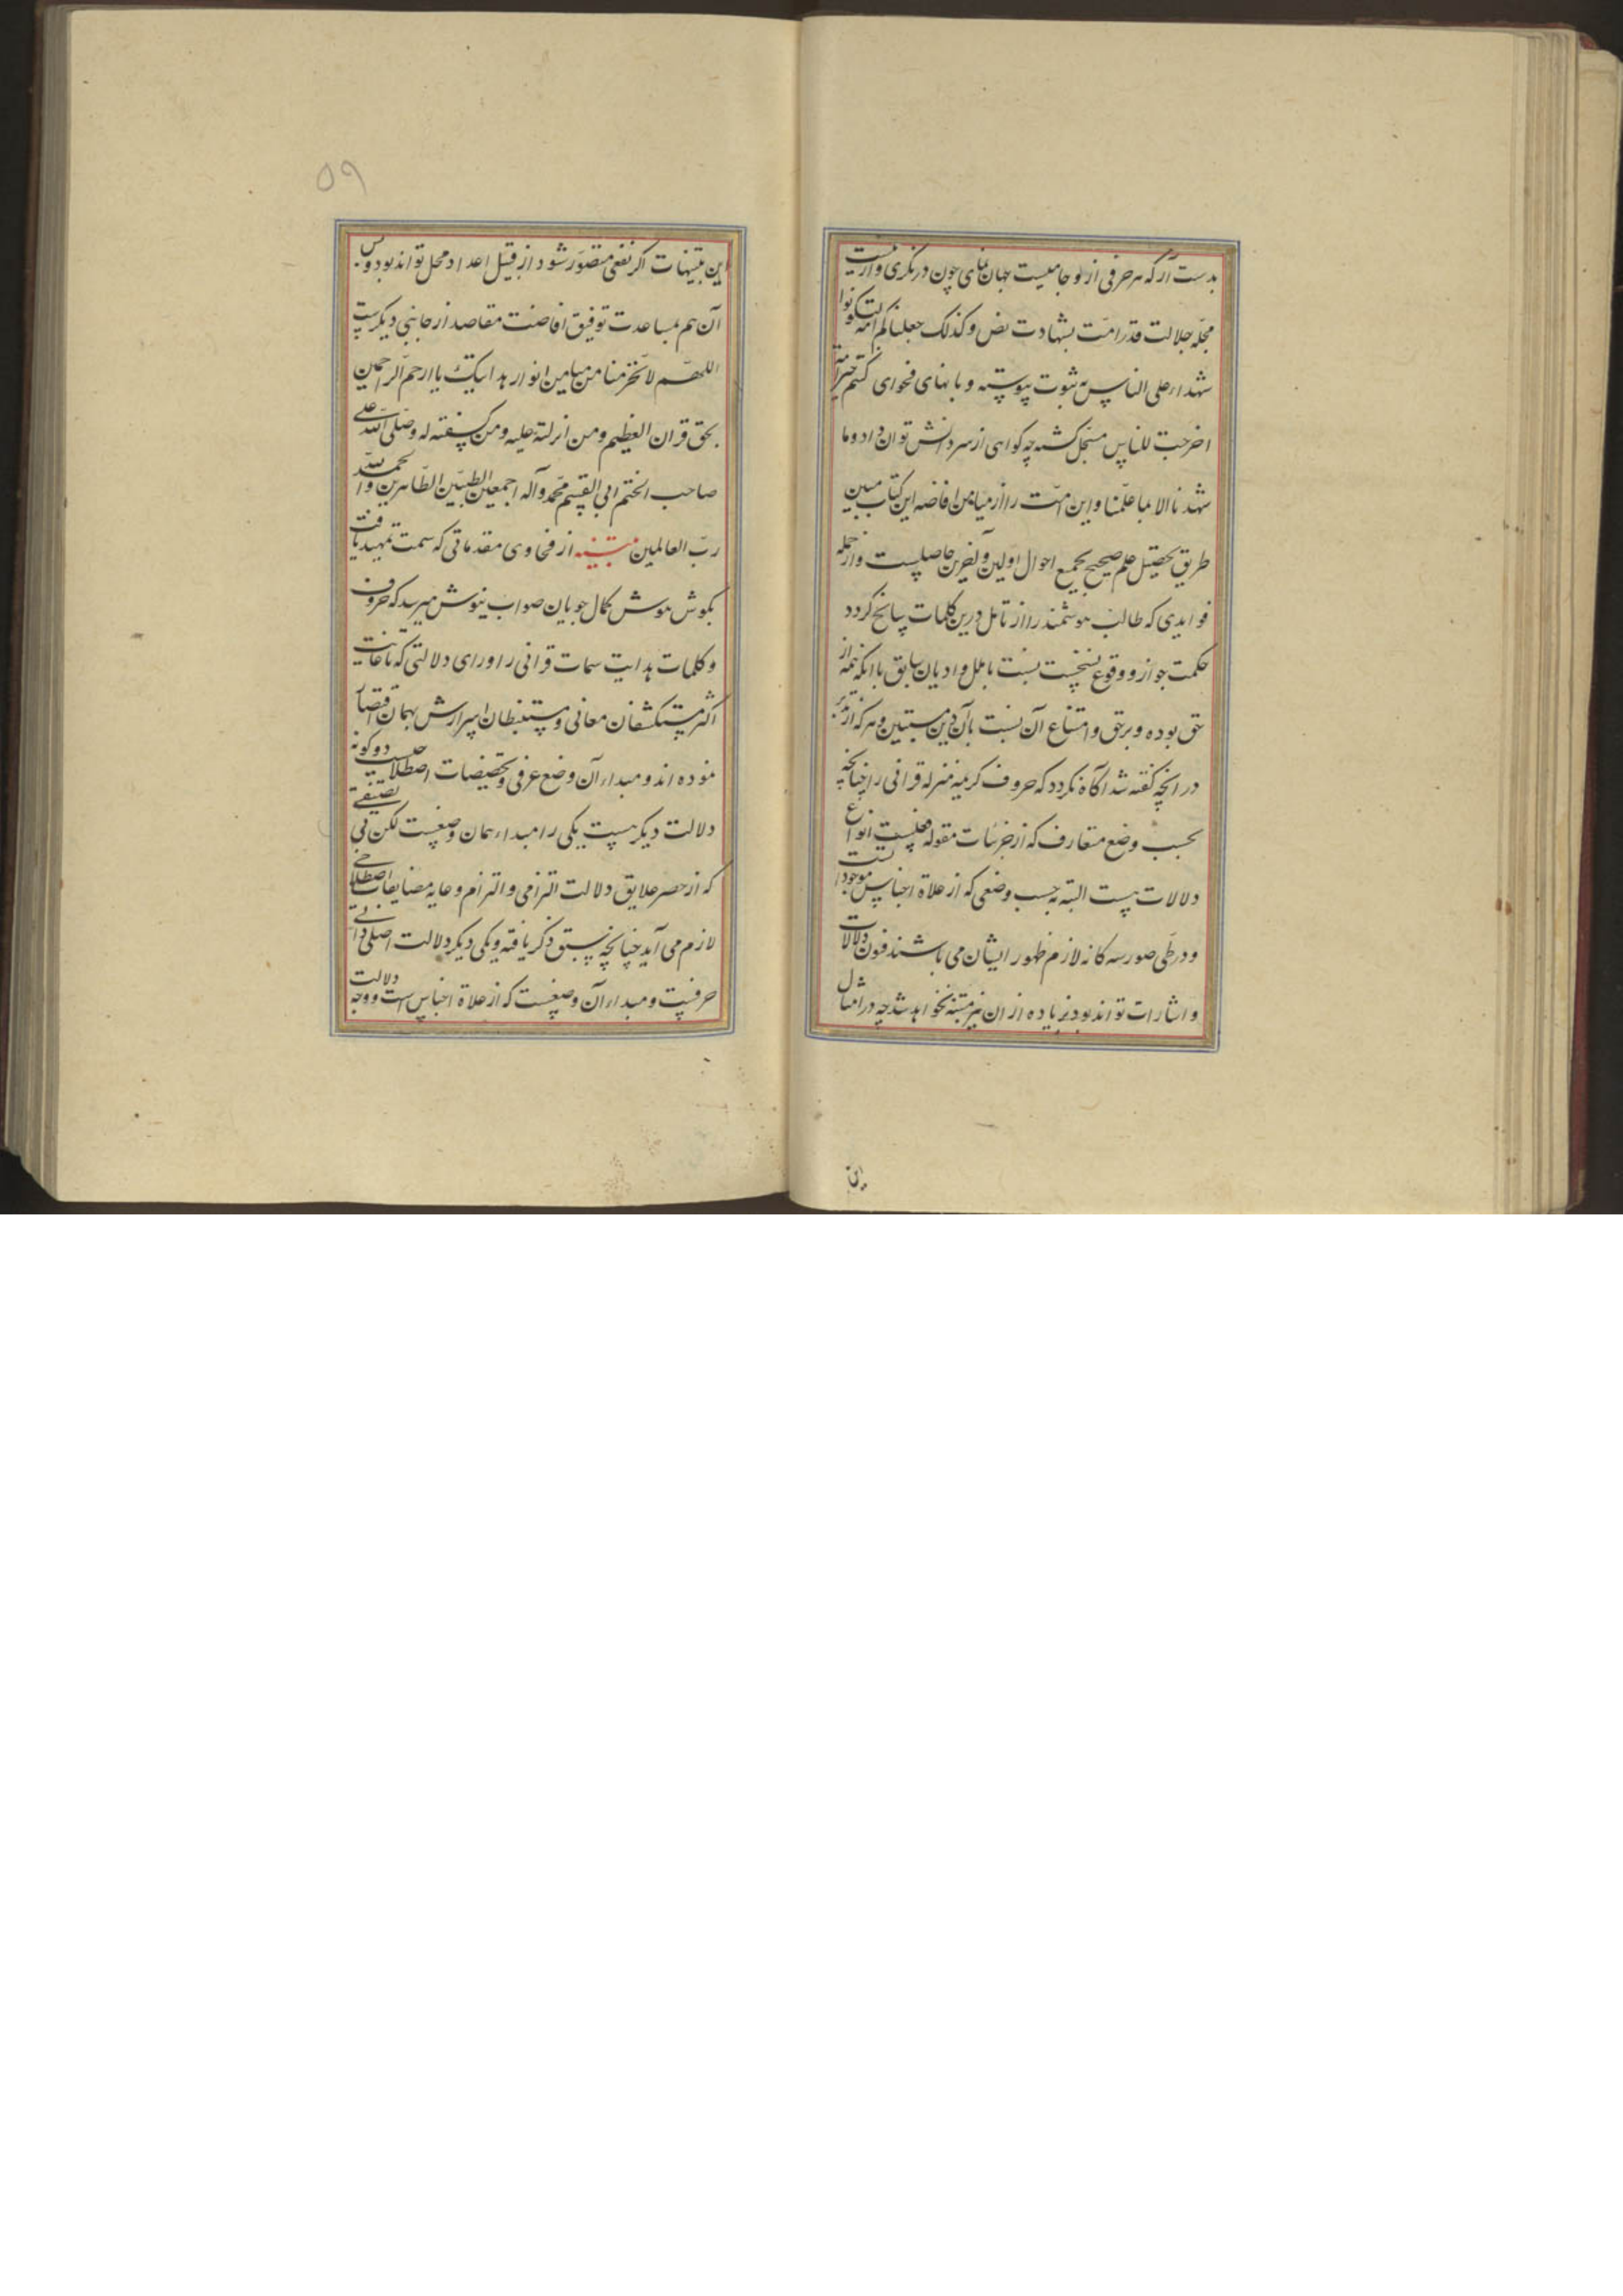 بدست آر که هر حرفی از و جامیست جهان نمای چون درنگری و ازینست
مجله جلالت قدر امت بشهادت نص وکذلک جعلناکم امة لتکونوا
شهداء علی الناس به ثبوت پیوسته و بانهای فحوای کنتم خیر امة
اخرجت للناس مسجل کشته چه کواهی از سر دانش توان داد و ما
شهدنا الا بما علمنا و این امت را از میامن افاضه این کتاب مبین
طریق تحصیل علم صحیح بجمیع احوال اولین و آخرین حاصلست و از جمله
فوایدی که طالب هوشمند را از تامل درین کلمات سانح کردد
حکمت جواز و وقوع نسخست نسبت با ملل و ادیان سابق با انکه همه از
حق بوده و بر حق و امتناع آن نسبت بآن دین مستبین و هر که از تدبر
در انچه کفته شد اکاه نکردد که حروف کریمه منزله قرانی را چنانچه
بحسب وضع متعارف که از جزئیات مقوله فعلست انواع
دلالات هست البته بحسب وضعی که از علاة اجناس موجوداتست
و در طی صور سه کانه لازم ظهور ایشان می باشند فنون دلالات
و اشارات تواند بود زیاده از ان نیز متنبه نخواهد شد چه در امثال
این
۵۹
این تنبیهات اکر نفعی متصور شود از قبیل اعداد محل تواند بود و بس
آن هم بمساعدت توفیق افاضت مقاصد از جانبی دیکرست
اللهم لا تحرمنا من میامن انوار هدایتک یا ارحم الراحمین
بحق قران العظیم ومن انزلته علیه ومن کشفته له وصلی الله علی
صاحب الختم ابی القسم محمد وآله اجمعین الطیبین الطاهرین والحمد لله
رب العالمین تنبیه از فحاوی مقدماتی که سمت تمهید یافت
بکوش هوش کمال جویان صواب نیوش میرسد که حروف
و کلمات هدایت سمات قرانی را ورای دلالتی که تا غایت
اکثر مستکشفان معانی و مستنبطان اسرارش بهمان اقتصار
نموده اند و مبداء آن وضع عرفی و تخصیصات اصطلاحیست دو کونه
دلالت دیکر هست یکی را مبداء همان وضعست لکن بی تضییقی
که از حصر علایق دلالت التزامی و التزام رعایه مضایقات اصطلاحی
لازم می آید چنانچه سبق ذکر یافته و یکی دیکر دلالت اصلی ذاتی
حرفیت و مبداء آن وضعیست که از علاة اجناس است و وجه دلالت